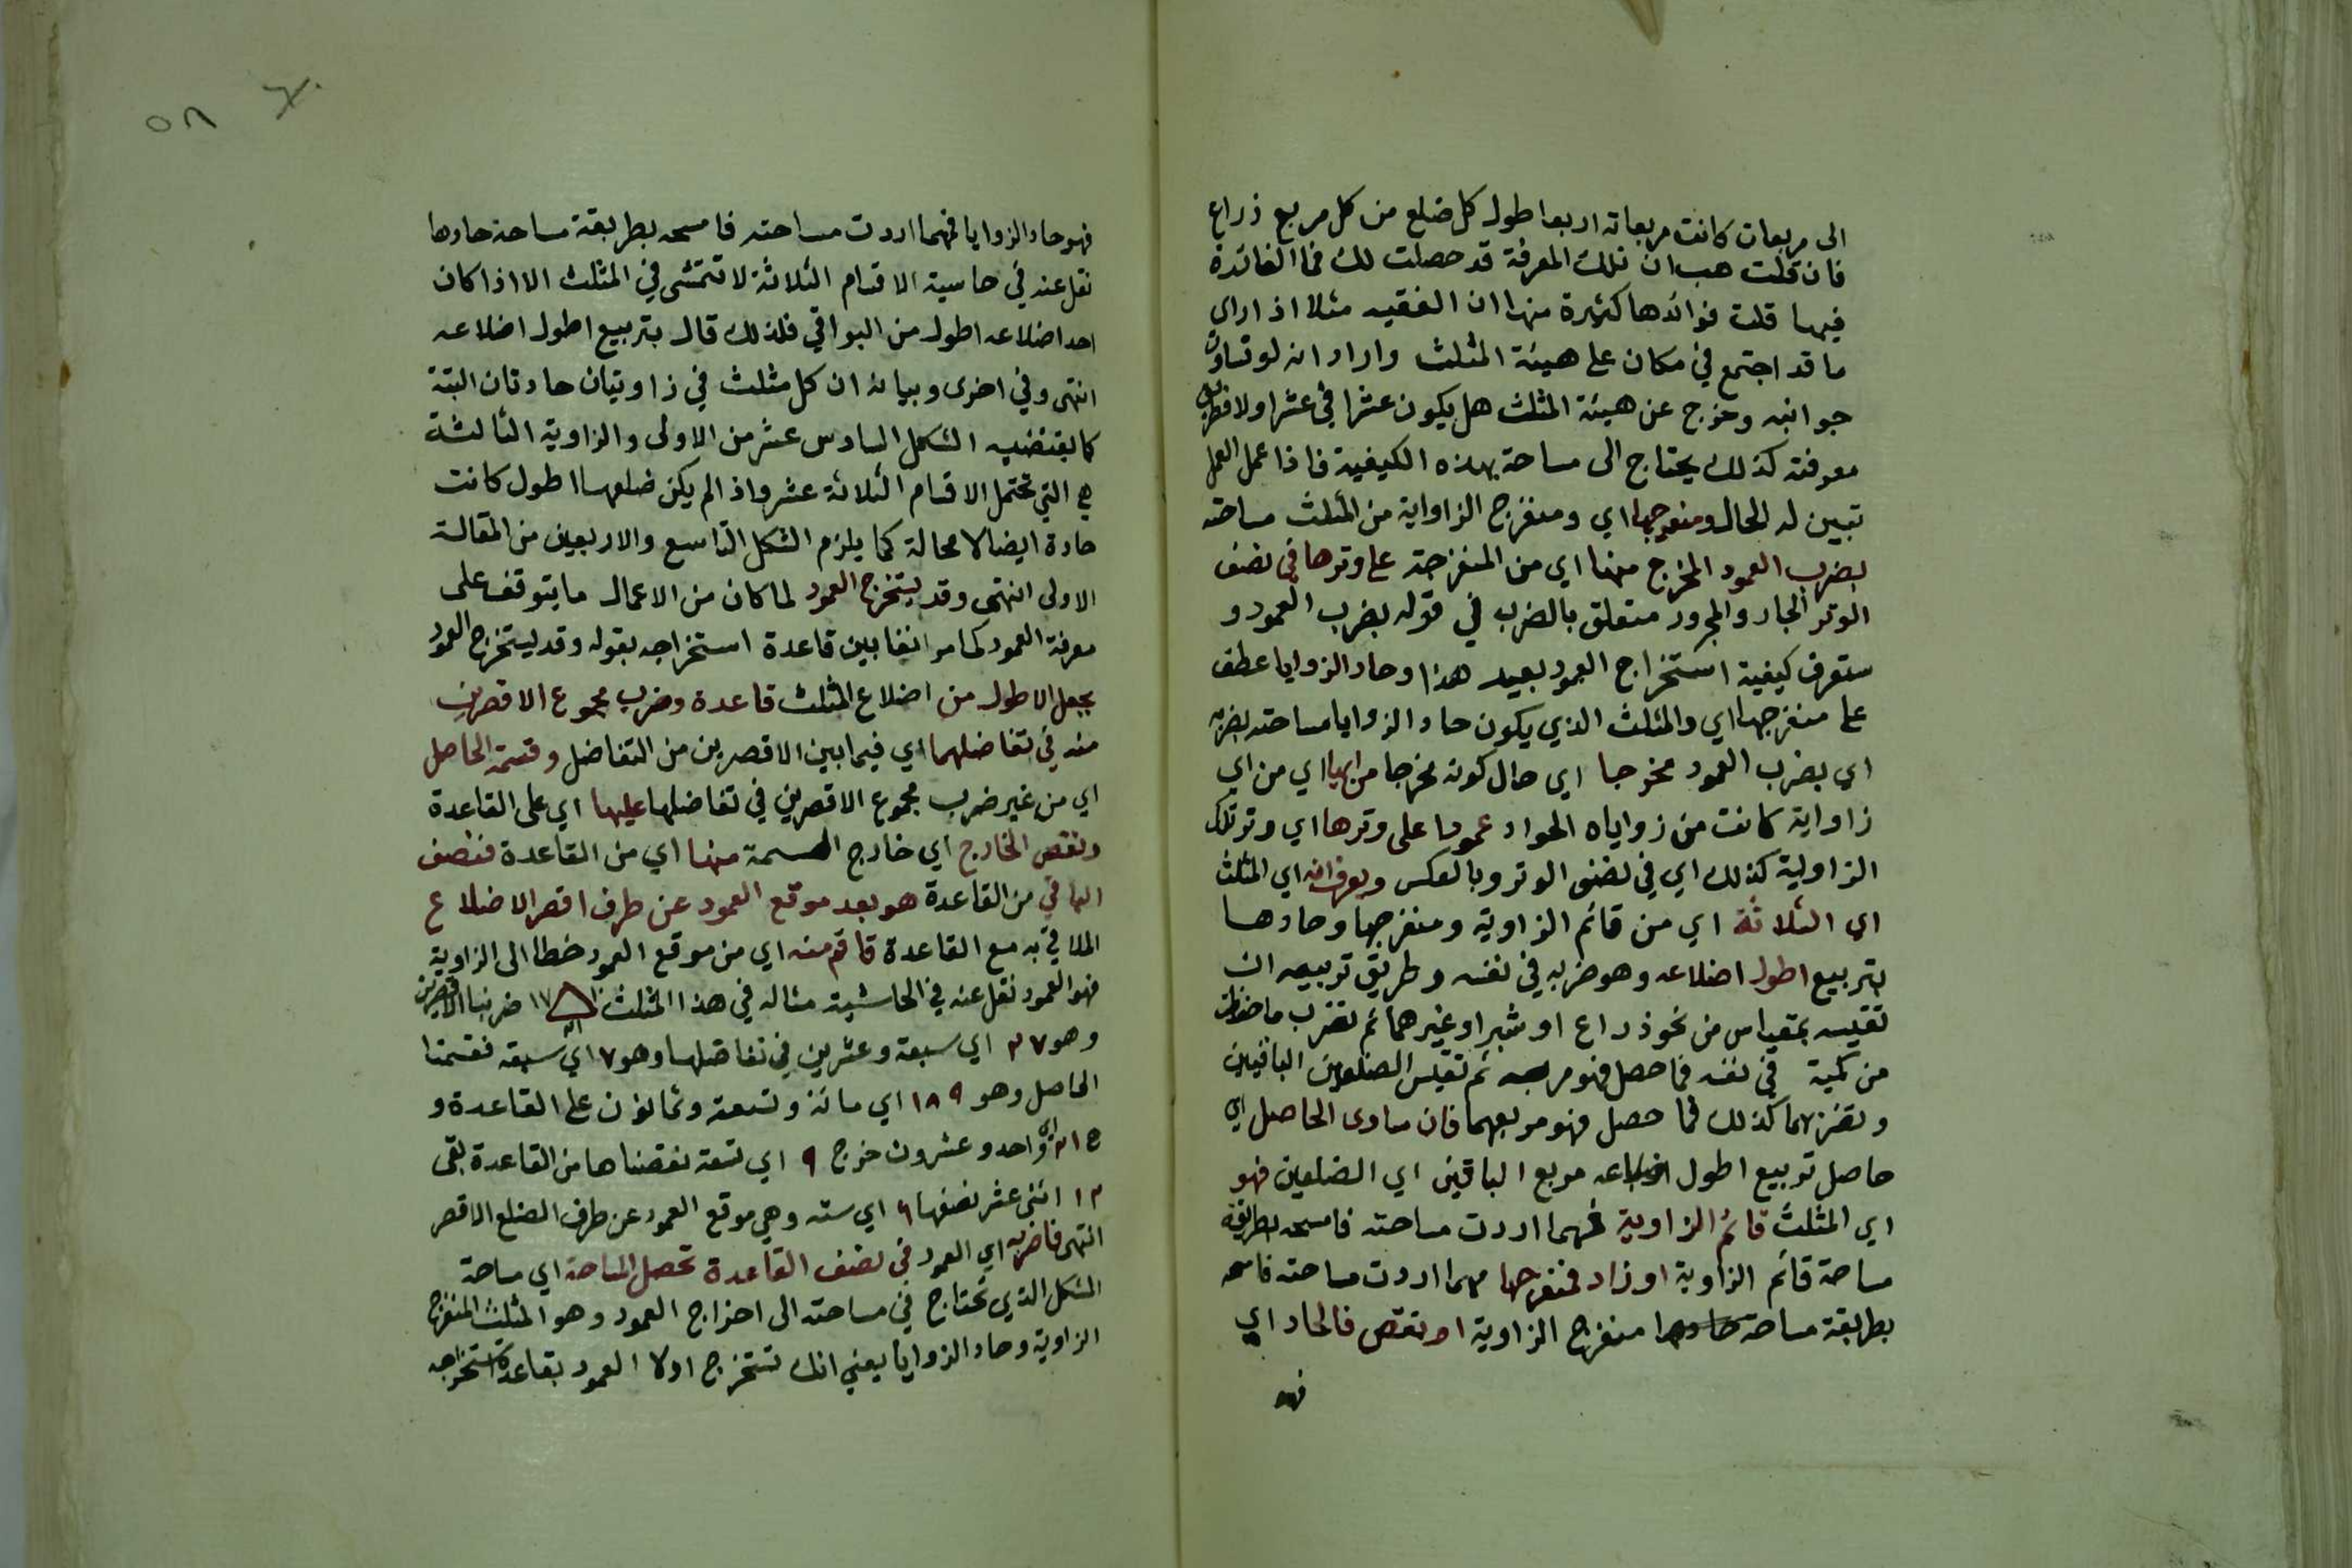 الى مربعات كانت مربعاته اربعا طول كل ضلع من كل مربع ذراع
فان قلت هب ان تلك المعرفة قد حصلت لك فما الفائدة
فيها قلت فوائدها كثيرة منها ان الفقيه مثلا اذا راى
ما قد اجتمع في مكان على هيئة المثلث واراد انه لو تساوت
جوانبه وخرج عن هيئة المثلث هل يكون عشرا في عشر اولا فطريق
معرفته كذلك يحتاج الى مساحة بهذه الكيفية فاذا عمل العمل
تبين له الحال ومنفرجها اي ومنفرج الزاوية من المثلث مساحته
بضرب العمود المخرج منها اي من المنفرجة على وترها في نصف
الوتر الجار والمجرور متعلق بالضرب في قوله بضرب العمود و
ستعرف كيفية استخراج العمود بعيد هذا وحاد الزوايا عطف
على منفرجها اي والمثلث الذي يكون حاد الزوايا مساحته بضربه
اي بضرب العمود مخرجا اي حال كونه مخرجا من ايها اي من اي
زاواية كانت من زواياه الحواد عمودا على وترها اي وتر تلك
الزاوية كذلك اي في نصف الوتر وبالعكس ويعرف انه اي المثلث
اي الثلاثة اي من قائم الزاوية ومنفرجها وحادها
بتربيع اطول اضلاعه وهو ضربه في نفسه وطريق تربيعه ان
تقيسه بمقياس من نحو ذراع او شبر او غيرهما ثم تضرب ما حفظت
من كمية في نفسه فما حصل فهو مربعه ثم تقيس الضلعين الباقيين
وتضربهما كذلك فما حصل فهو مربعهما فان ساوى الحاصل اي
حاصل تربيع اطول اضلاعه مربع الباقين اي الضلعين فهو
اي المثلث قائم الزاوية فهما اردت مساحته فامسحه بطريقة
مساحة قائم الزاوية او زاد فمنفرجها مهما اردت مساحته فامسحه
بطريقة مساحة منفرج الزاوية او نقص فالحاد اي
فهو
٥٨
فهو حاد الزوايا فهما اردت مساحته فامسحه بطريقة مساحة حادها
نقل عنه في حاسية الاقسام الثلاثة لا تتمشى في المثلث الا اذا كان
احد اضلاعه اطول من البواقي فلذلك قال بتربيع اطول اضلاعه
انتهى وفي اخرى وبيانه ان كل مثلث في زاويتان حادتان البتة
كما يقتضيه الشكل السادس عشر من الاولى والزاوية الثالثة
هي التي تحتمل الاقسام الثلاثة عشر واذا لم يكن ضلعها اطول كانت
حادة ايضا لا محالة كما يلزم الشكل التاسع والاربعين من المقالة
الاولى انتهى وقد يستخرج العمود لما كان من الاعمال ما يتوقف على
معرفة العمود كما مر انفا بين قاعدة استخراجه بقوله وقد يستخرج العمود
بجعل الاطول من اضلاع المثلث قاعدة وضرب مجموع الاقصرين
منه في تفاضلهما اي فيما بين الاقصرين من التفاضل وقسمة الحاصل
اي من غير ضرب مجموع الاقصرين في تفاضلها عليها اي على القاعدة
ونقص الخارج اي خارج القسمة منها اي من القاعدة فنصف
الباقي من القاعدة هو بعد موقع العمود عن طرف اقصر الاضلاع
الملاقي به مع القاعدة فاقم منه اي من موقع العمود خطا الى الزاوية
فهو العمود نقل عنه في الحاشية مثاله في هذا المثلث ١٠ ١٧ ٢١ ضربنا الاقصرين
وهو ٢٧ اي سبعة وعشرين في تفاضلها وهو ٧ اي سبعة فقسمنا
الحاصل وهو ١٨٩ اي مائة وتسعة وثمانون على القاعدة و
ه ٢١ اي واحد وعشرون خرج ٩ اي تسعة نقصناها من القاعدة بقى
١٢ اثنى عشر نصفها ٦ اي ستة وهي موقع العمود عن طرف الضلع الاقصر
انتهى فاضربه اي العمود في نصف القاعدة تحصل المساحة اي مساحة
الشكل الذي تحتاج في مساحته الى اخراج العمود وهو المثلث المنفرج
الزاوية وحاد الزوايا يعني انك تستخرج اولا العمود بقاعدة استخراجه